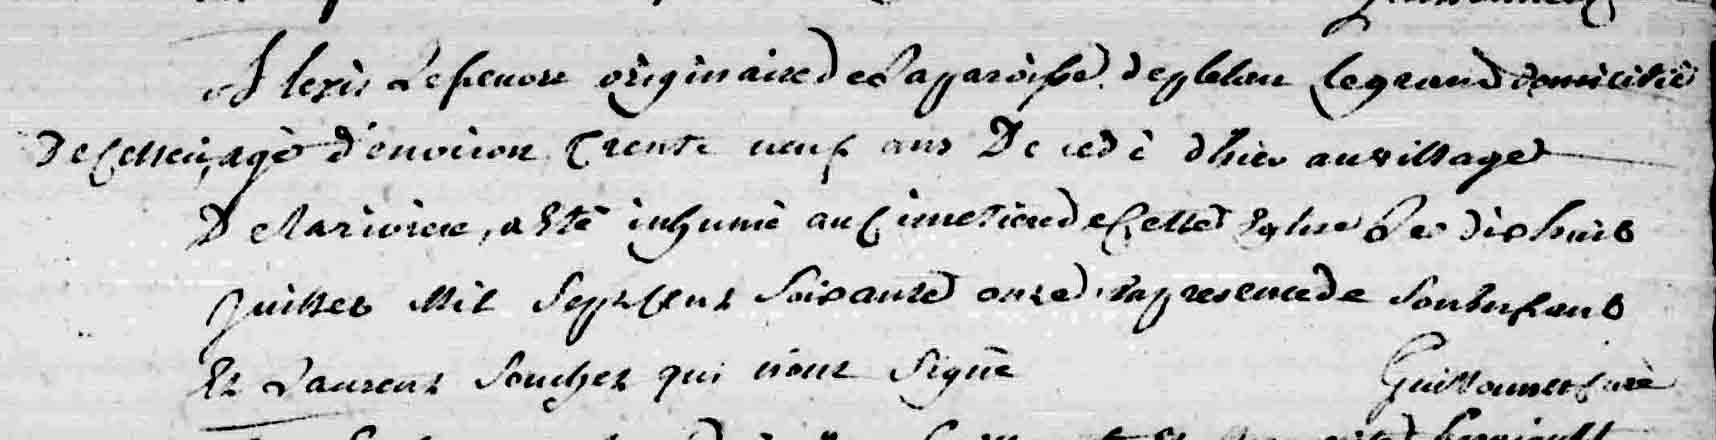 Alexis Lefeuvre originaire de La paroisse de plelan Le grand domicilié
De Cellecy, agé d'environ Trente neuf ans Decedé d'hier au village
De La riviere, a Eté inhumé au Cimetiere de Cette Eglise Le dix huit
Juillet Mil Sept Cent Soixante onze, En presence de Son Enfant
Et Laurent Souchet qui n'ont Signé
Guillounet Curé